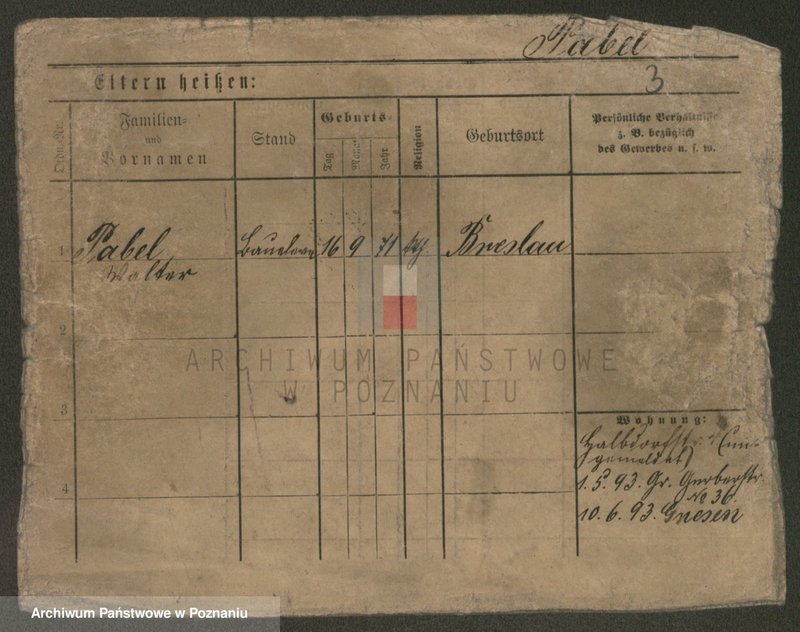 Pabel
3
Eltern heißen:
Ordn.-Nr.
Familien-
und
Vornamen
Stand
Geburts-
Tag
Monat
Jahr
Religion
Geburtsort
Persönliche Verhältnisse
z. B. bezüglich
des Gewerbes u. s. w.
1
Pabel
Walter
16
9
71
Breslau
2
3
4
ARCHIWUM PAŃSTWOWE
W POZNANIU
Wohnung:
Halbdorfstr.
gemeldet)
1. 5. 93. Gr. Gerberstr.
No 36.
10. 6. 93. Gnesen
Archiwum Państwowe w Poznaniu